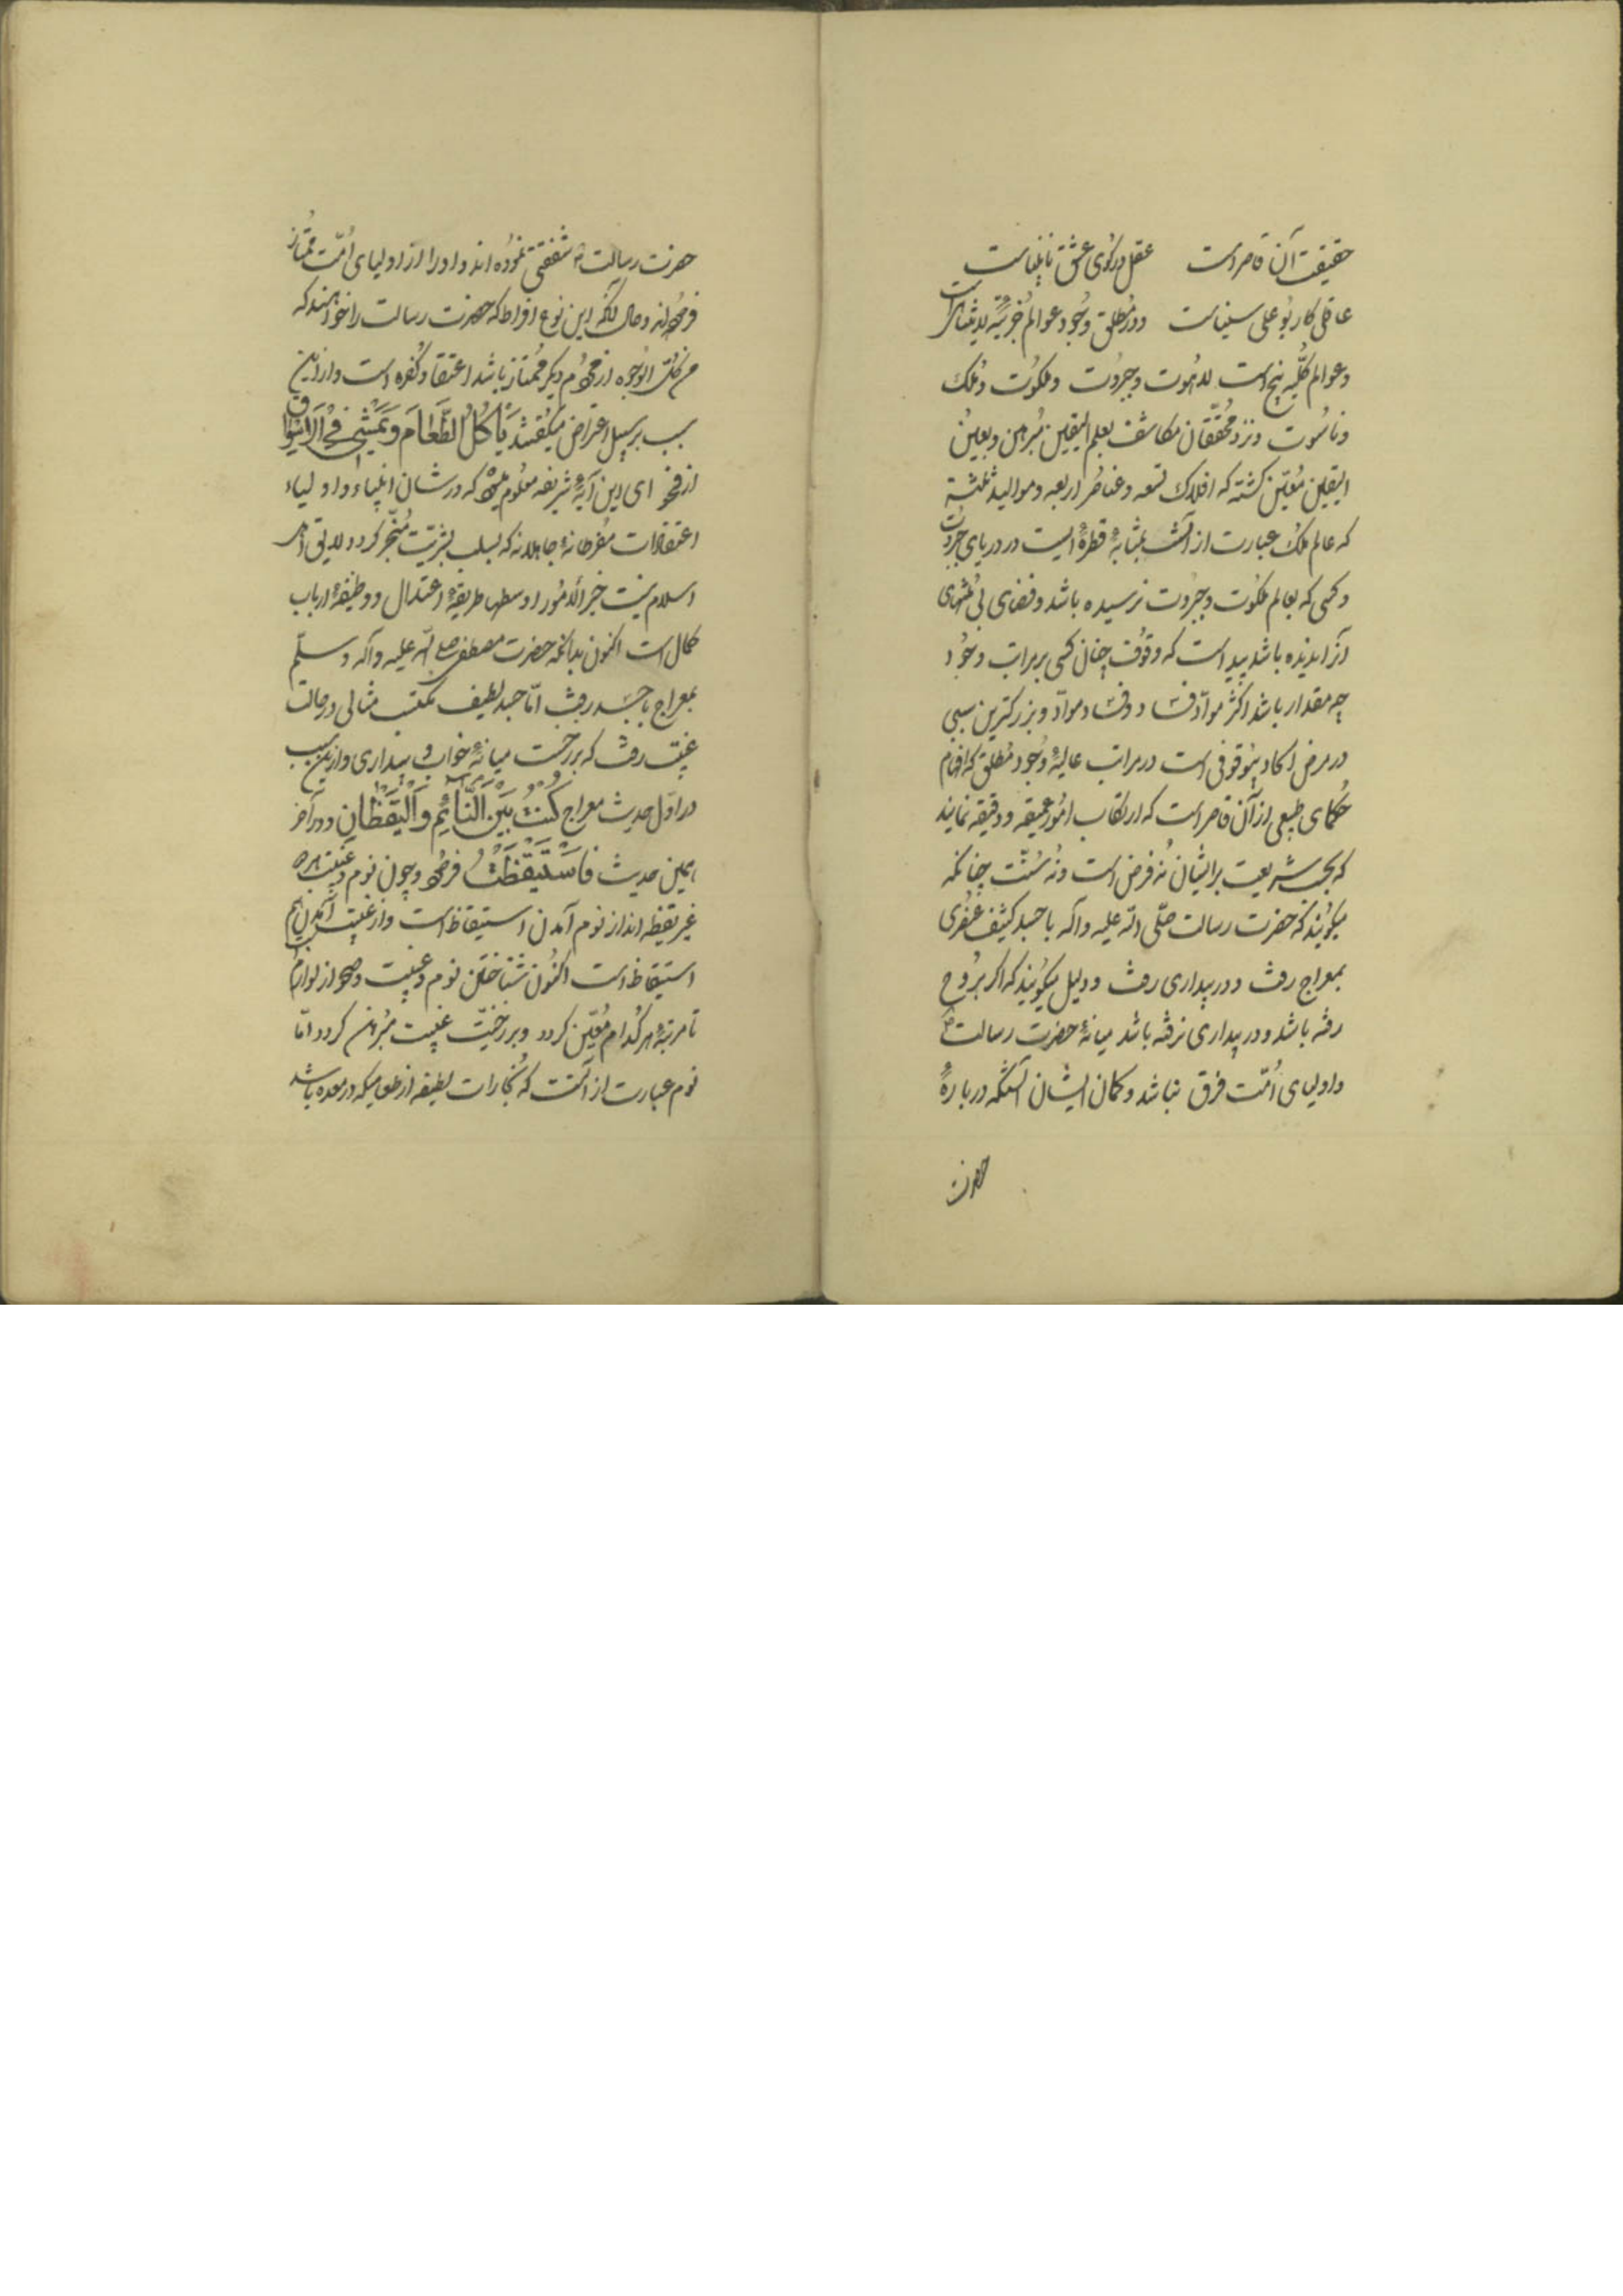 حقیقت آن قاصر است عقل در کوی عشق نابیناست
عاقلی کار بوعلی سیناست و در مطلق وجود عوالم جزئیه لایتناهی است
و عوالم کلیه پنج است لاهوت و جبروت و ملکوت و ملک
و ناسوت و نزد محققان مکاشف بعلم الیقین مبرهن و بعین
الیقین معین کشته که افلاک تسعه و عناصر اربعه و موالید ثلثه
که عالم ملک عبارت از آنست بمثابهٔ قطرهٔ ایست در دریای جبروت
و کسی که بعالم ملکوت و جبروت نرسیده باشد و فضای بی منتهای
آنرا ندیده باشد پیداست که وقوف چنان کسی بر مراتب وجود
چه مقدار باشد اکثر مواد فساد و فساد مواد و بزرکترین سببی
در مرض الحاد بیوقوفی است در مراتب عالیهٔ وجود مطلق که افهام
حکمای طبیعی از آن قاصر است که ارتکاب امور عمیقه و دقیقه نمایند
که بحسب شریعت برایشان نه فرض است و نه سنت چنانکه
میکویند که حضرت رسالت صلی الله علیه و آله با جسد کثیف عنصری
بمعراج رفت و در بیداری رفت و دلیل میکویند که اکر بروح
رفته باشد و در بیداری نرفته باشد میانهٔ حضرت رسالت ص
و اولیای امت فرق نباشد و کمان ایشان آنستکه دربارهٔ
حضرت
حضرت رسالت شفقتی نموده اند و او را از اولیای امت ممتاز
فرموده اند و حال آنکه این نوع افراط که حضرت رسالت را خواهند که
من کل الوجوه از مردم دیکر ممتاز باشد اعتقاد کفره است و از این
سبب بر سبیل اعتراض میکفتند یَأکُلُ الطَّعَامَ وَیَمْشِی فِی الْأَسْوَاقِ
از فحوای این آیهٔ شریفه معلوم میشود که در شان انبیاء و اولیاء
اعتقادات مفرطانهٔ جاهلانه که بسلب بشریت منجر کردد لایق اهل
اسلام نیست خیر الامور اوسطها طریقهٔ اعتدال و وظیفهٔ ارباب
کمال است اکنون بدانکه حضرت مصطفی صلی الله علیه و آله و سلم
بمعراج با جسد رفت اما جسد لطیف مکتسب مثالی در حالت
غیبت رفت که برزخست میانهٔ خواب و بیداری و از این سبب
در اول حدیث معراج کُنْتُ بَیْنَ النَّائِمِ وَالْیَقْظَانِ و در آخر
همین حدیث فَاسْتَیْقَظْتُ فرمود و چون نوم و غیبت هر دو
غیر یقظه اند از نوم آمدن استیقاظ است و از غیبت آمدن هم
استیقاظ است اکنون شناختن نوم و غیبت و صحو از لوازم است
تا مرتبهٔ هر کدام معین کردد و برزخیت غیبت مبرهن کردد اما
نوم عبارت از آنست که بخارات لطیفه از طعامیکه در معده باشد